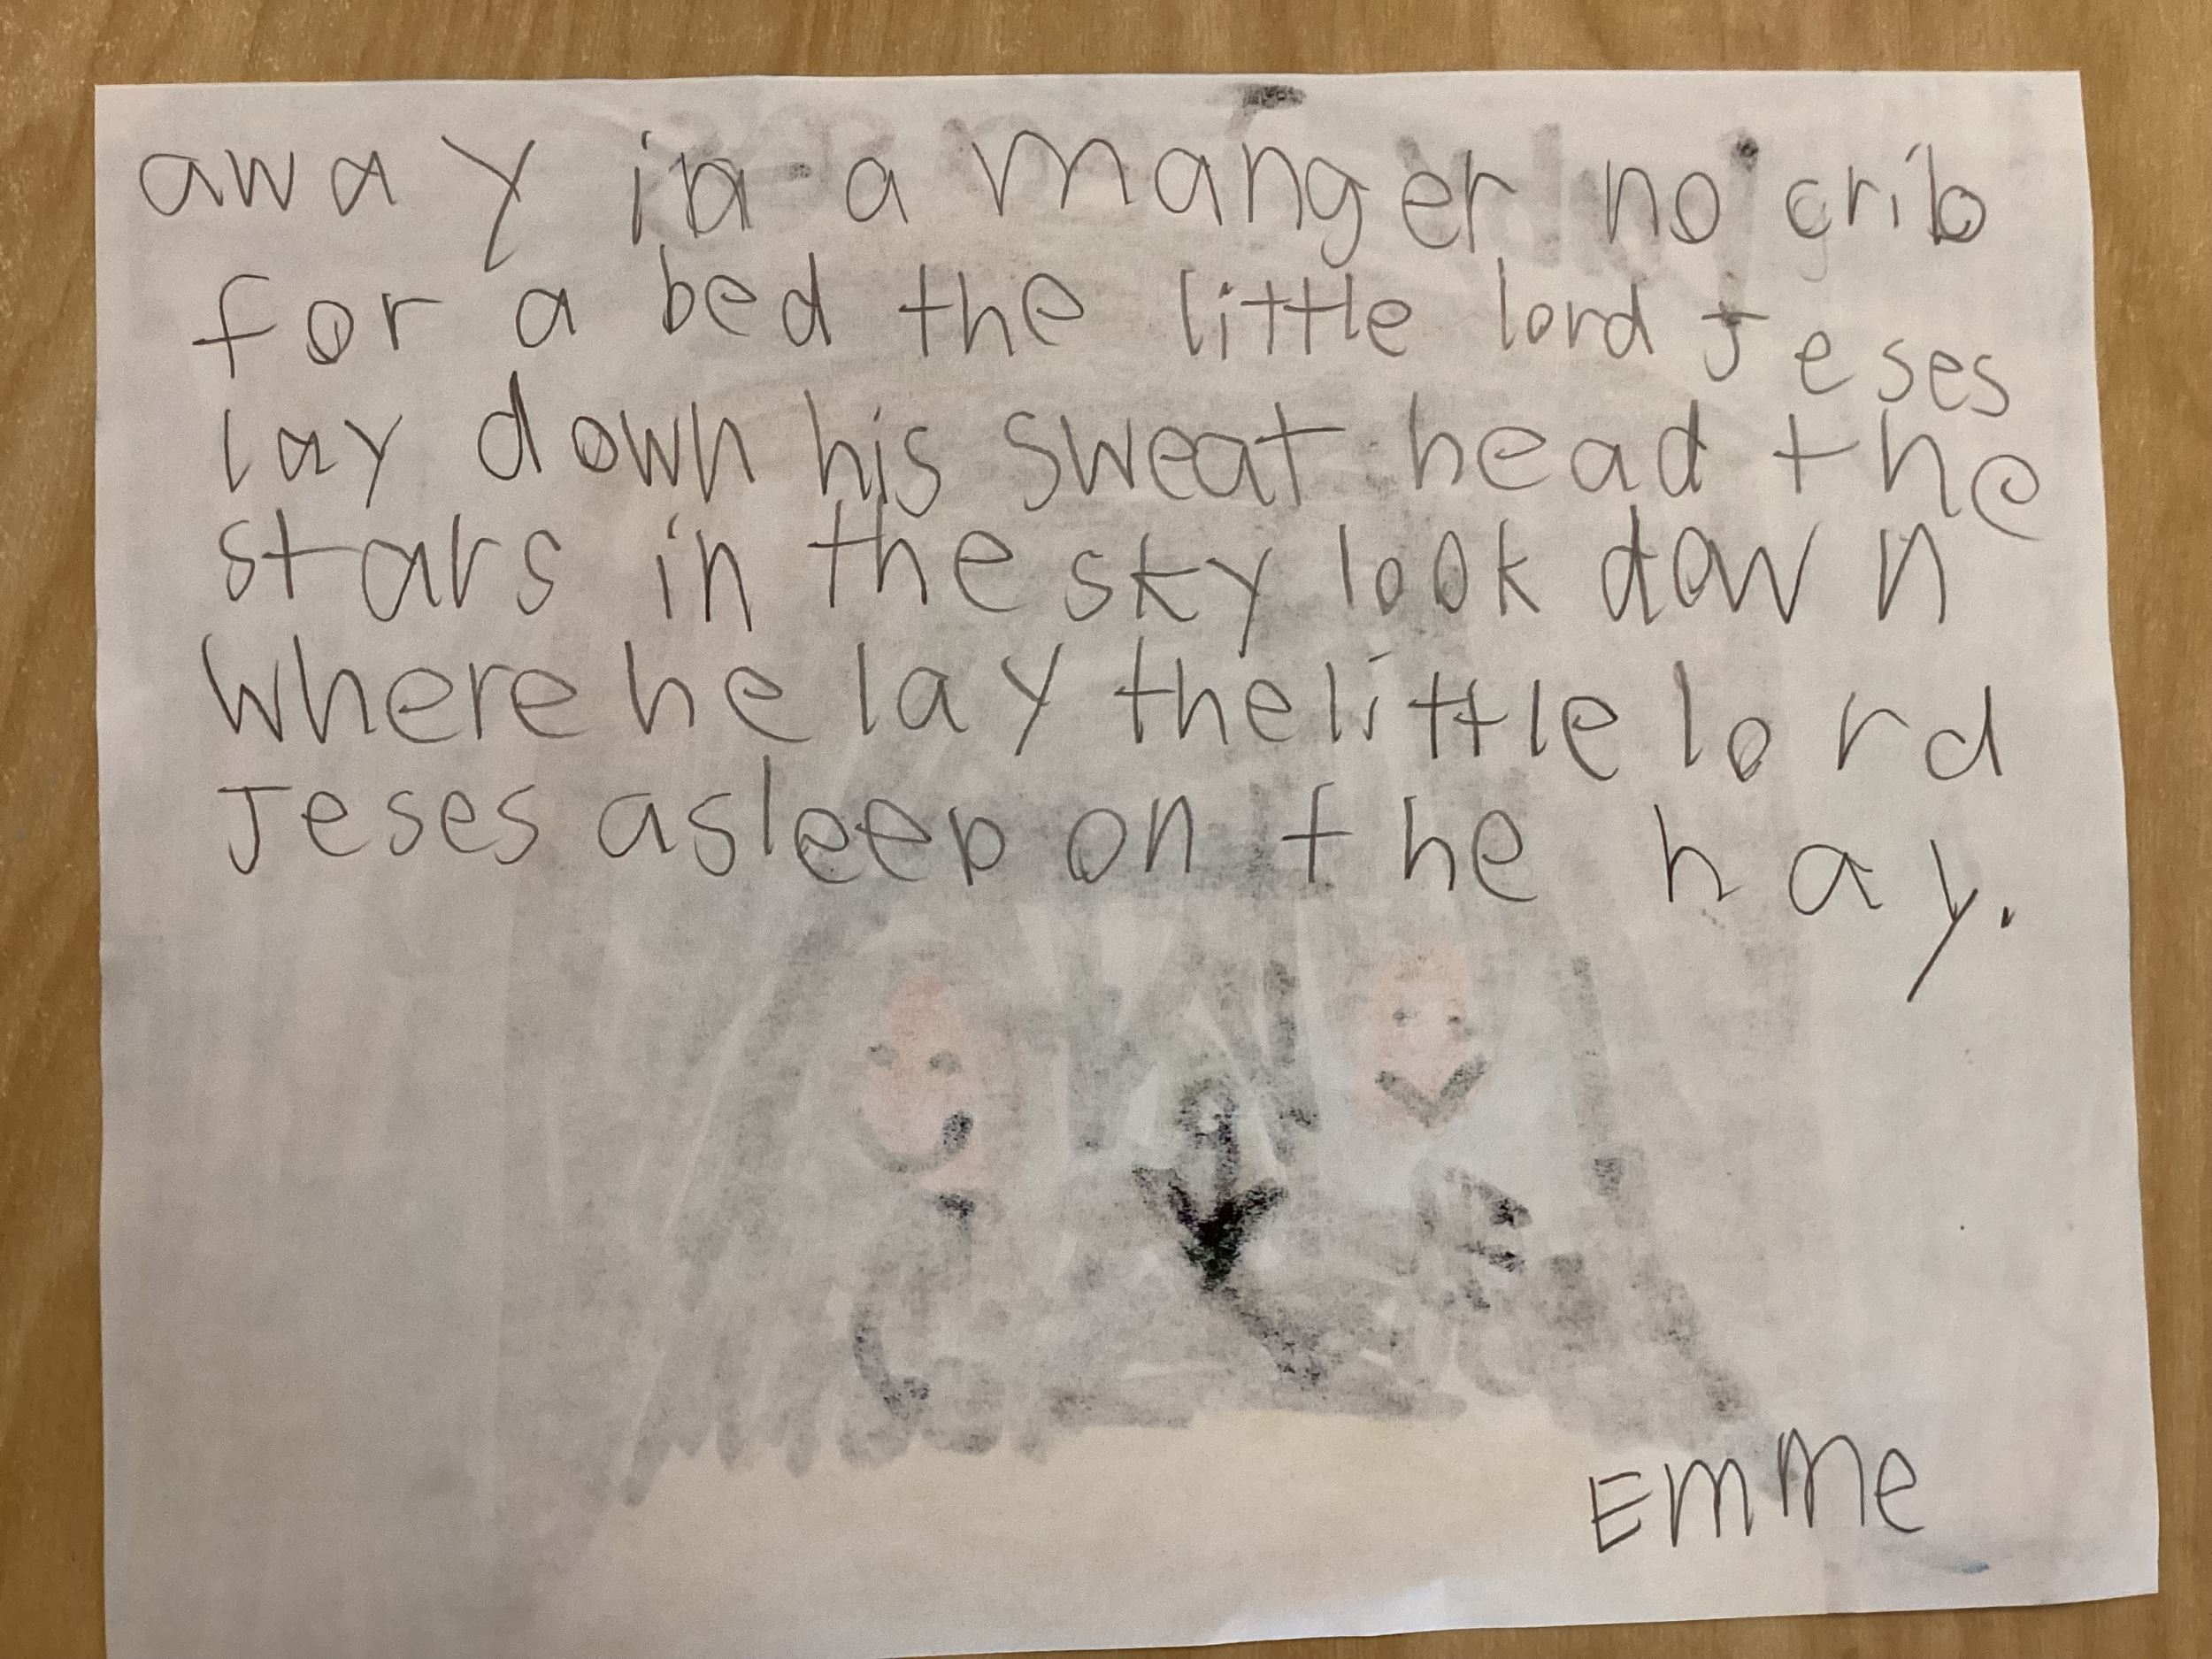 away in a manger no crib
for a bed the little lord Jeses
lay down his sweat head the
stars in the sky look down
where he lay the little lord
Jeses asleep on the hay.
Emme